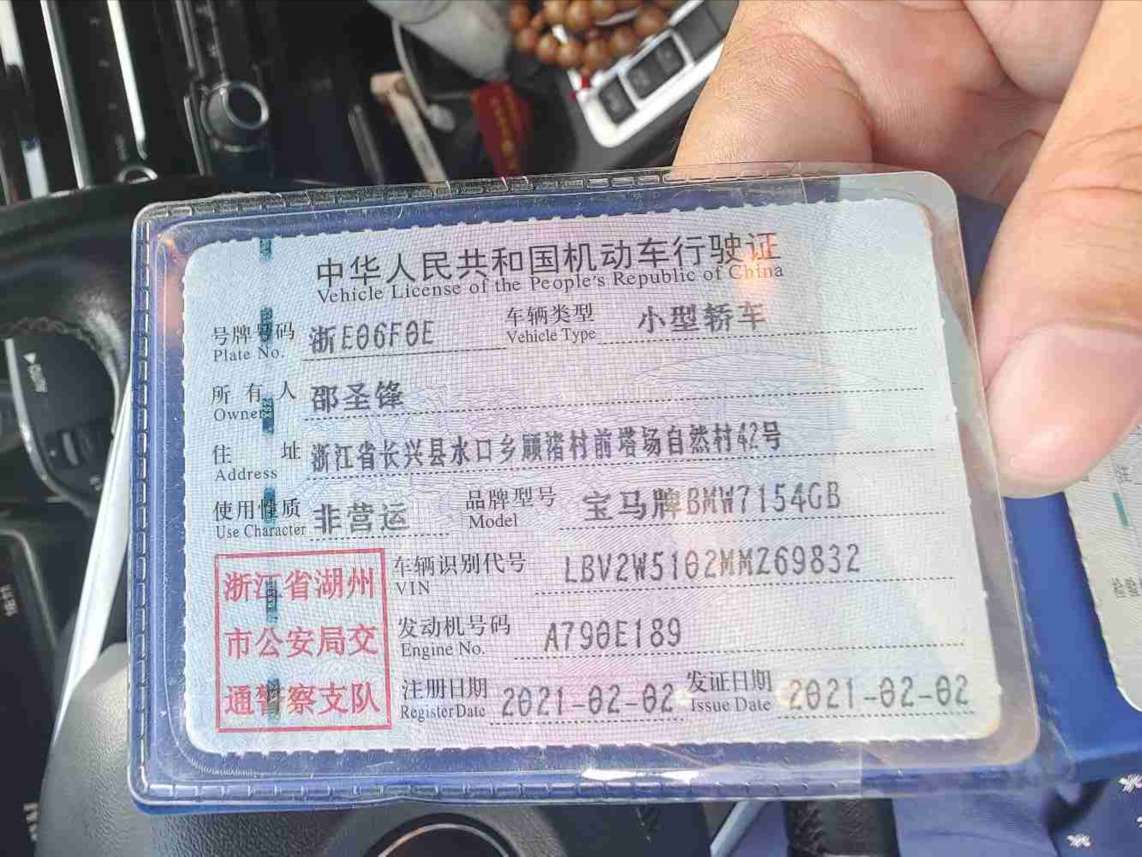 中华人民共和国机动车行驶证
Vehicle License of the People's Republic of China
号牌号码 浙E06F0E 车辆类型 小型轿车
Plate No. Vehicle Type
所有人 邵圣锋
Owner
住址 浙江省长兴县水口乡顾渚村前塔场自然村42号
Address
使用性质 非营运 品牌型号 宝马牌BMW7154GB
Use Character Model
浙江省湖州
市公安局交
通警察支队
车辆识别代号 LBV2W5102MMZ69832
VIN
发动机号码 A790E189
Engine No.
注册日期 2021-02-02 发证日期 2021-02-02
Register Date Issue Date
注
检验